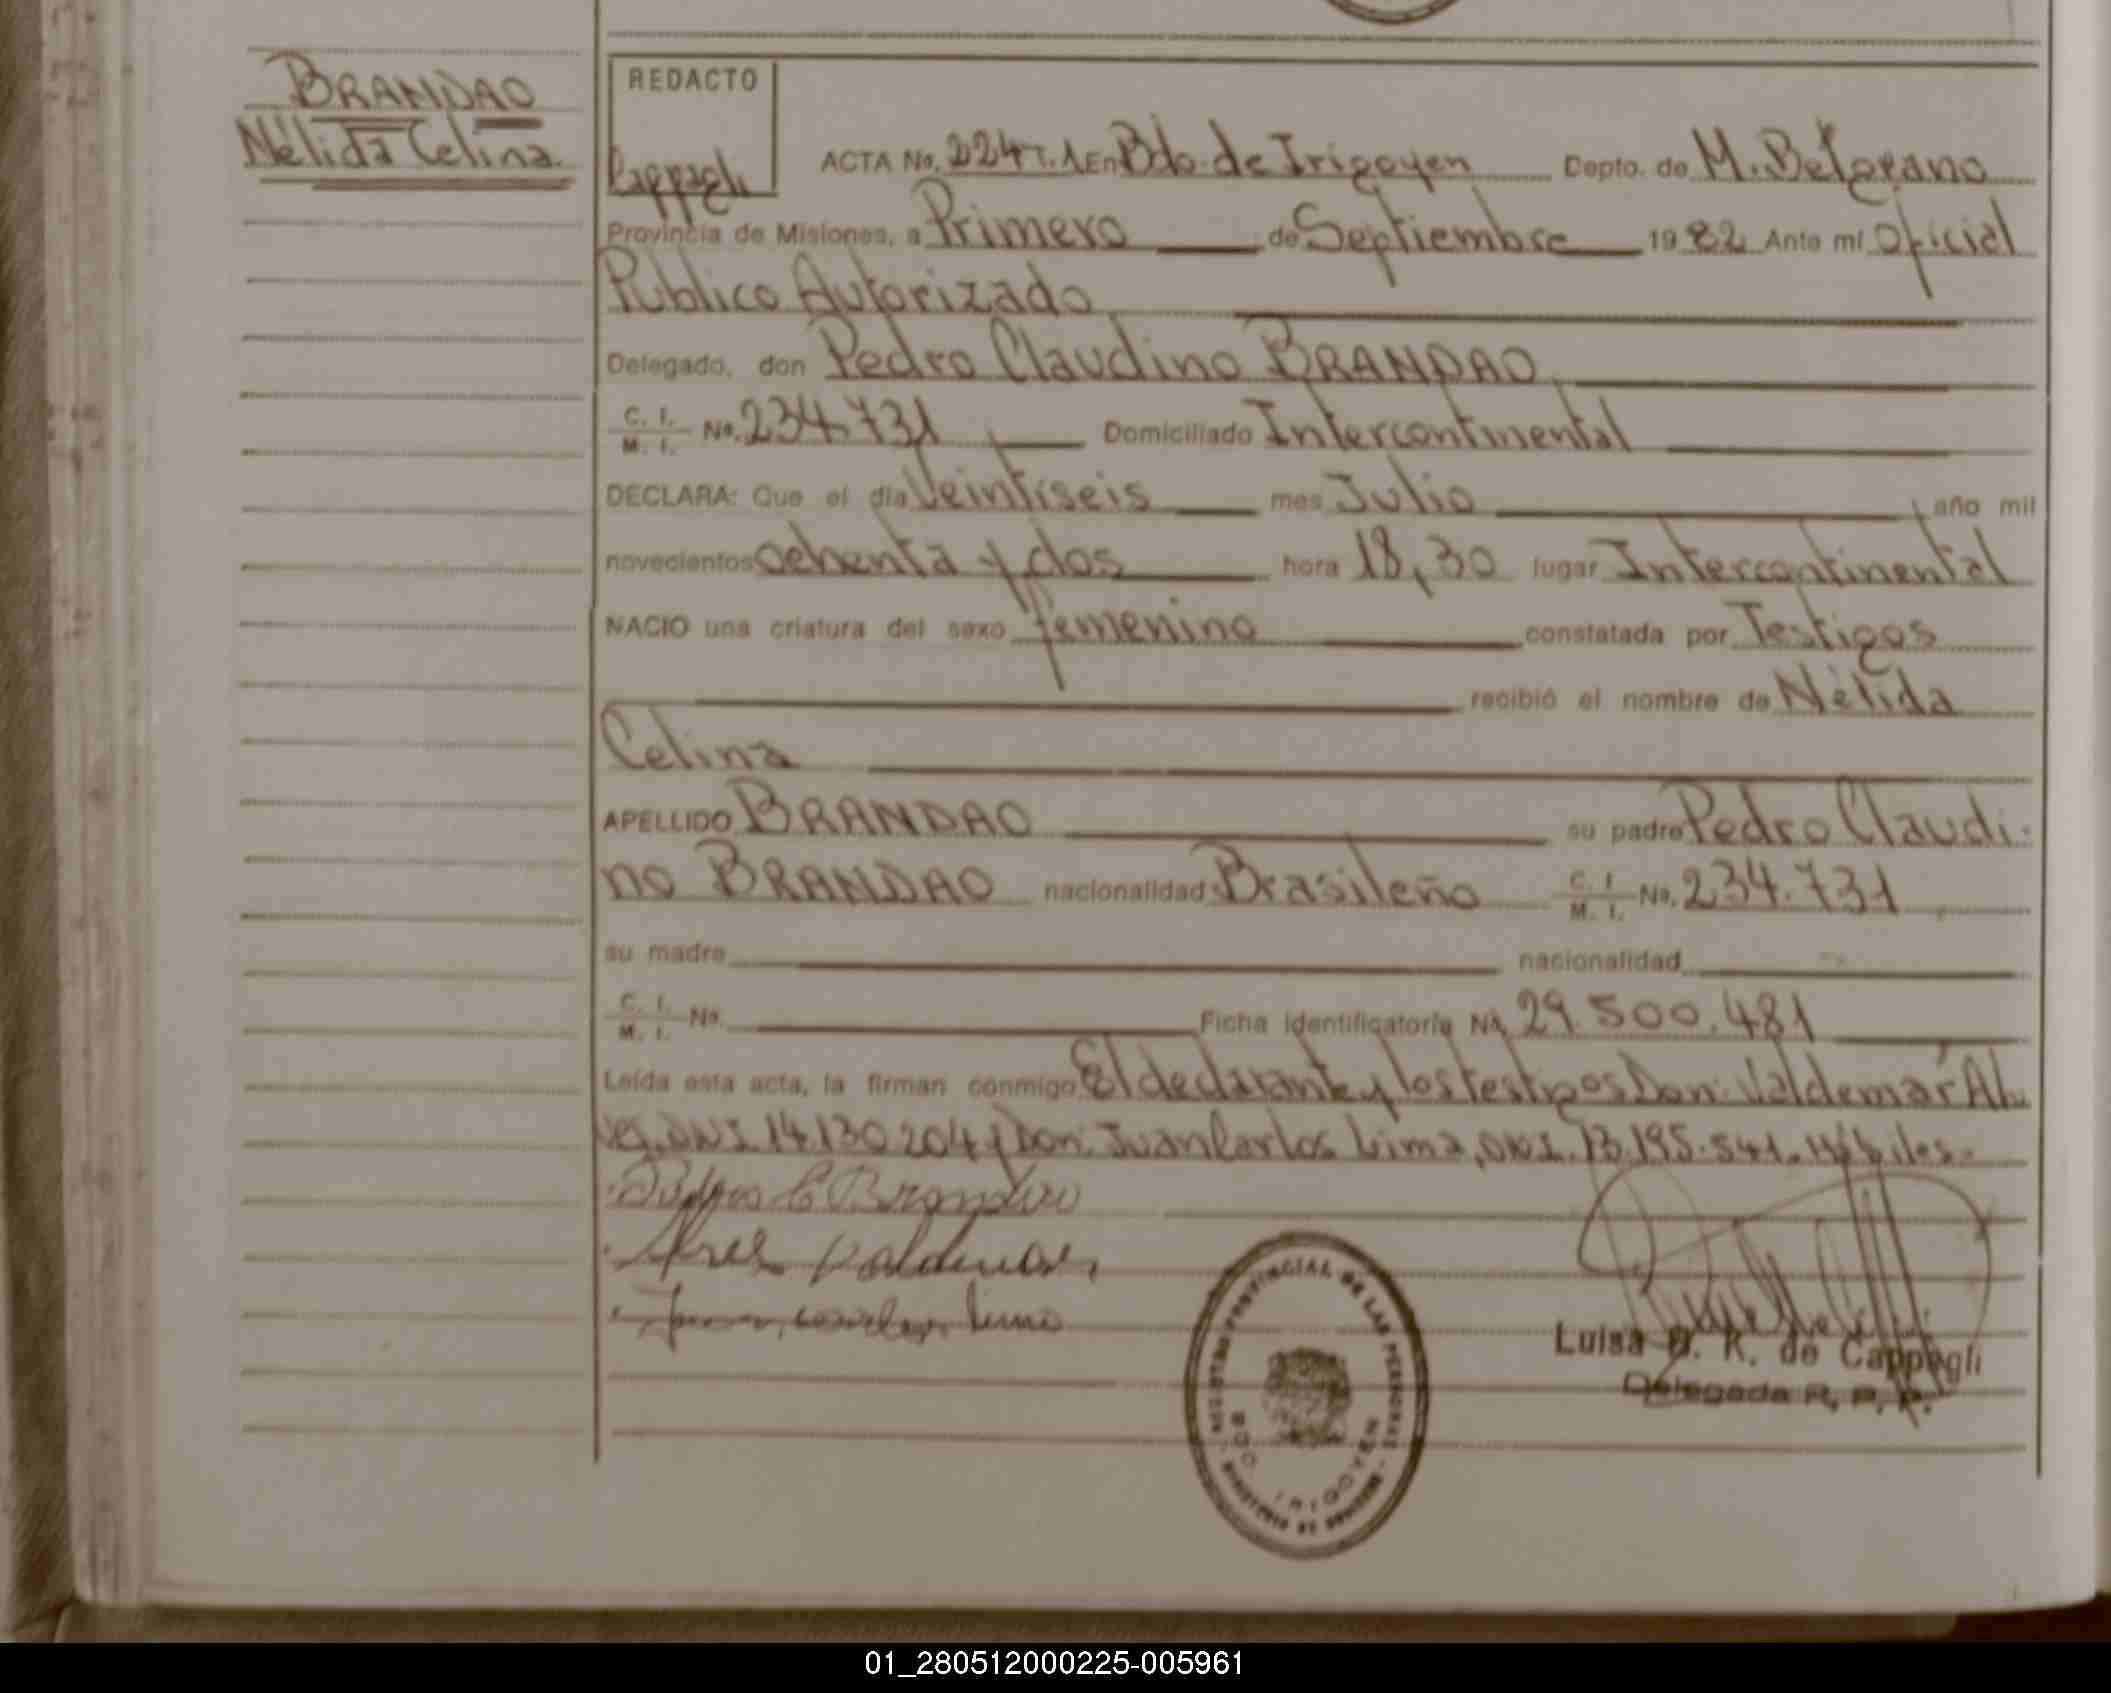 BRANDAO
Nélida Celina.
REDACTO
Cappagli
ACTA No. 224 T. 1 En Bdo. de Irigoyen Depto. de M. Belgrano
Provincia de Misiones, a Primero de Septiembre 19 82 Ante mí Oficial
Público Autorizado
Delegado, don Pedro Claudino BRANDAO
C. I.
M. I. No. 234.731 Domiciliado Intercontinental
DECLARA: Que el día Veintiseis mes Julio año mil
novecientos ochenta y dos hora 18,30 lugar Intercontinental
NACIO una criatura del sexo femenino constatada por Testigos
recibió el nombre de Nélida
Celina
APELLIDO BRANDAO su padre Pedro Claudi-
no BRANDAO nacionalidad Brasileño C. I.
M. I. No. 234.731
su madre nacionalidad
C. I.
M. I. No. Ficha identificatoria No. 29.500.481
Leída esta acta, la firman conmigo El declarante y los testigos Don: Valdemar Al
ves, DNI. 14.130.204 y Don: Juan Carlos Lima, DNI. 13.195.541. Hábiles.
Pedro C Brandao
Alves Valdemar
Juan carlos lima
REGISTRO PROVINCIAL DE LAS PERSONAS
MINISTERIO DE GOBIERNO
BDO. IRIGOYEN
Luisa K. de Cappagli
Delegada R. P. P.
01_280512000225-005961